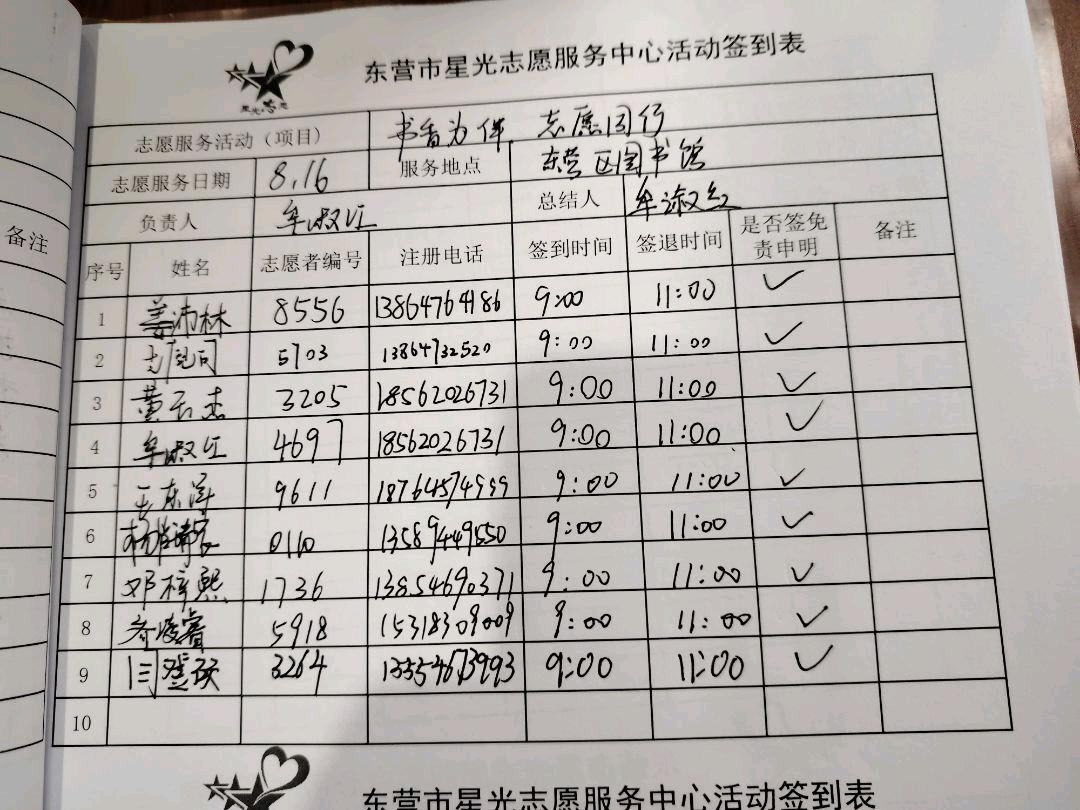 东营市星光志愿服务中心活动签到表
志愿服务活动（项目） 书香为伴 志愿同行
志愿服务日期 8.16 服务地点 东营区图书馆
负责人 牟淑红 总结人 牟淑红
序号 姓名 志愿者编号 注册电话 签到时间 签退时间 是否签免责申明 备注
1 姜沛林 8556 13864764186 9:00 11:00 ✓
2 5703 13864732520 9:00 11:00 ✓
3 黄云杰 3205 18562026731 9:00 11:00 ✓
4 牟淑红 4697 18562026731 9:00 11:00 ✓
5 王东洋 9611 18764574999 9:00 11:00 ✓
6 0110 13589449550 9:00 11:00 ✓
7 邓梓熙 1736 13854690371 9:00 11:00 ✓
8 5918 15318309009 9:00 11:00 ✓
9 3264 9:00 11:00 ✓
10
备注
东营市星光志愿服务中心活动签到表